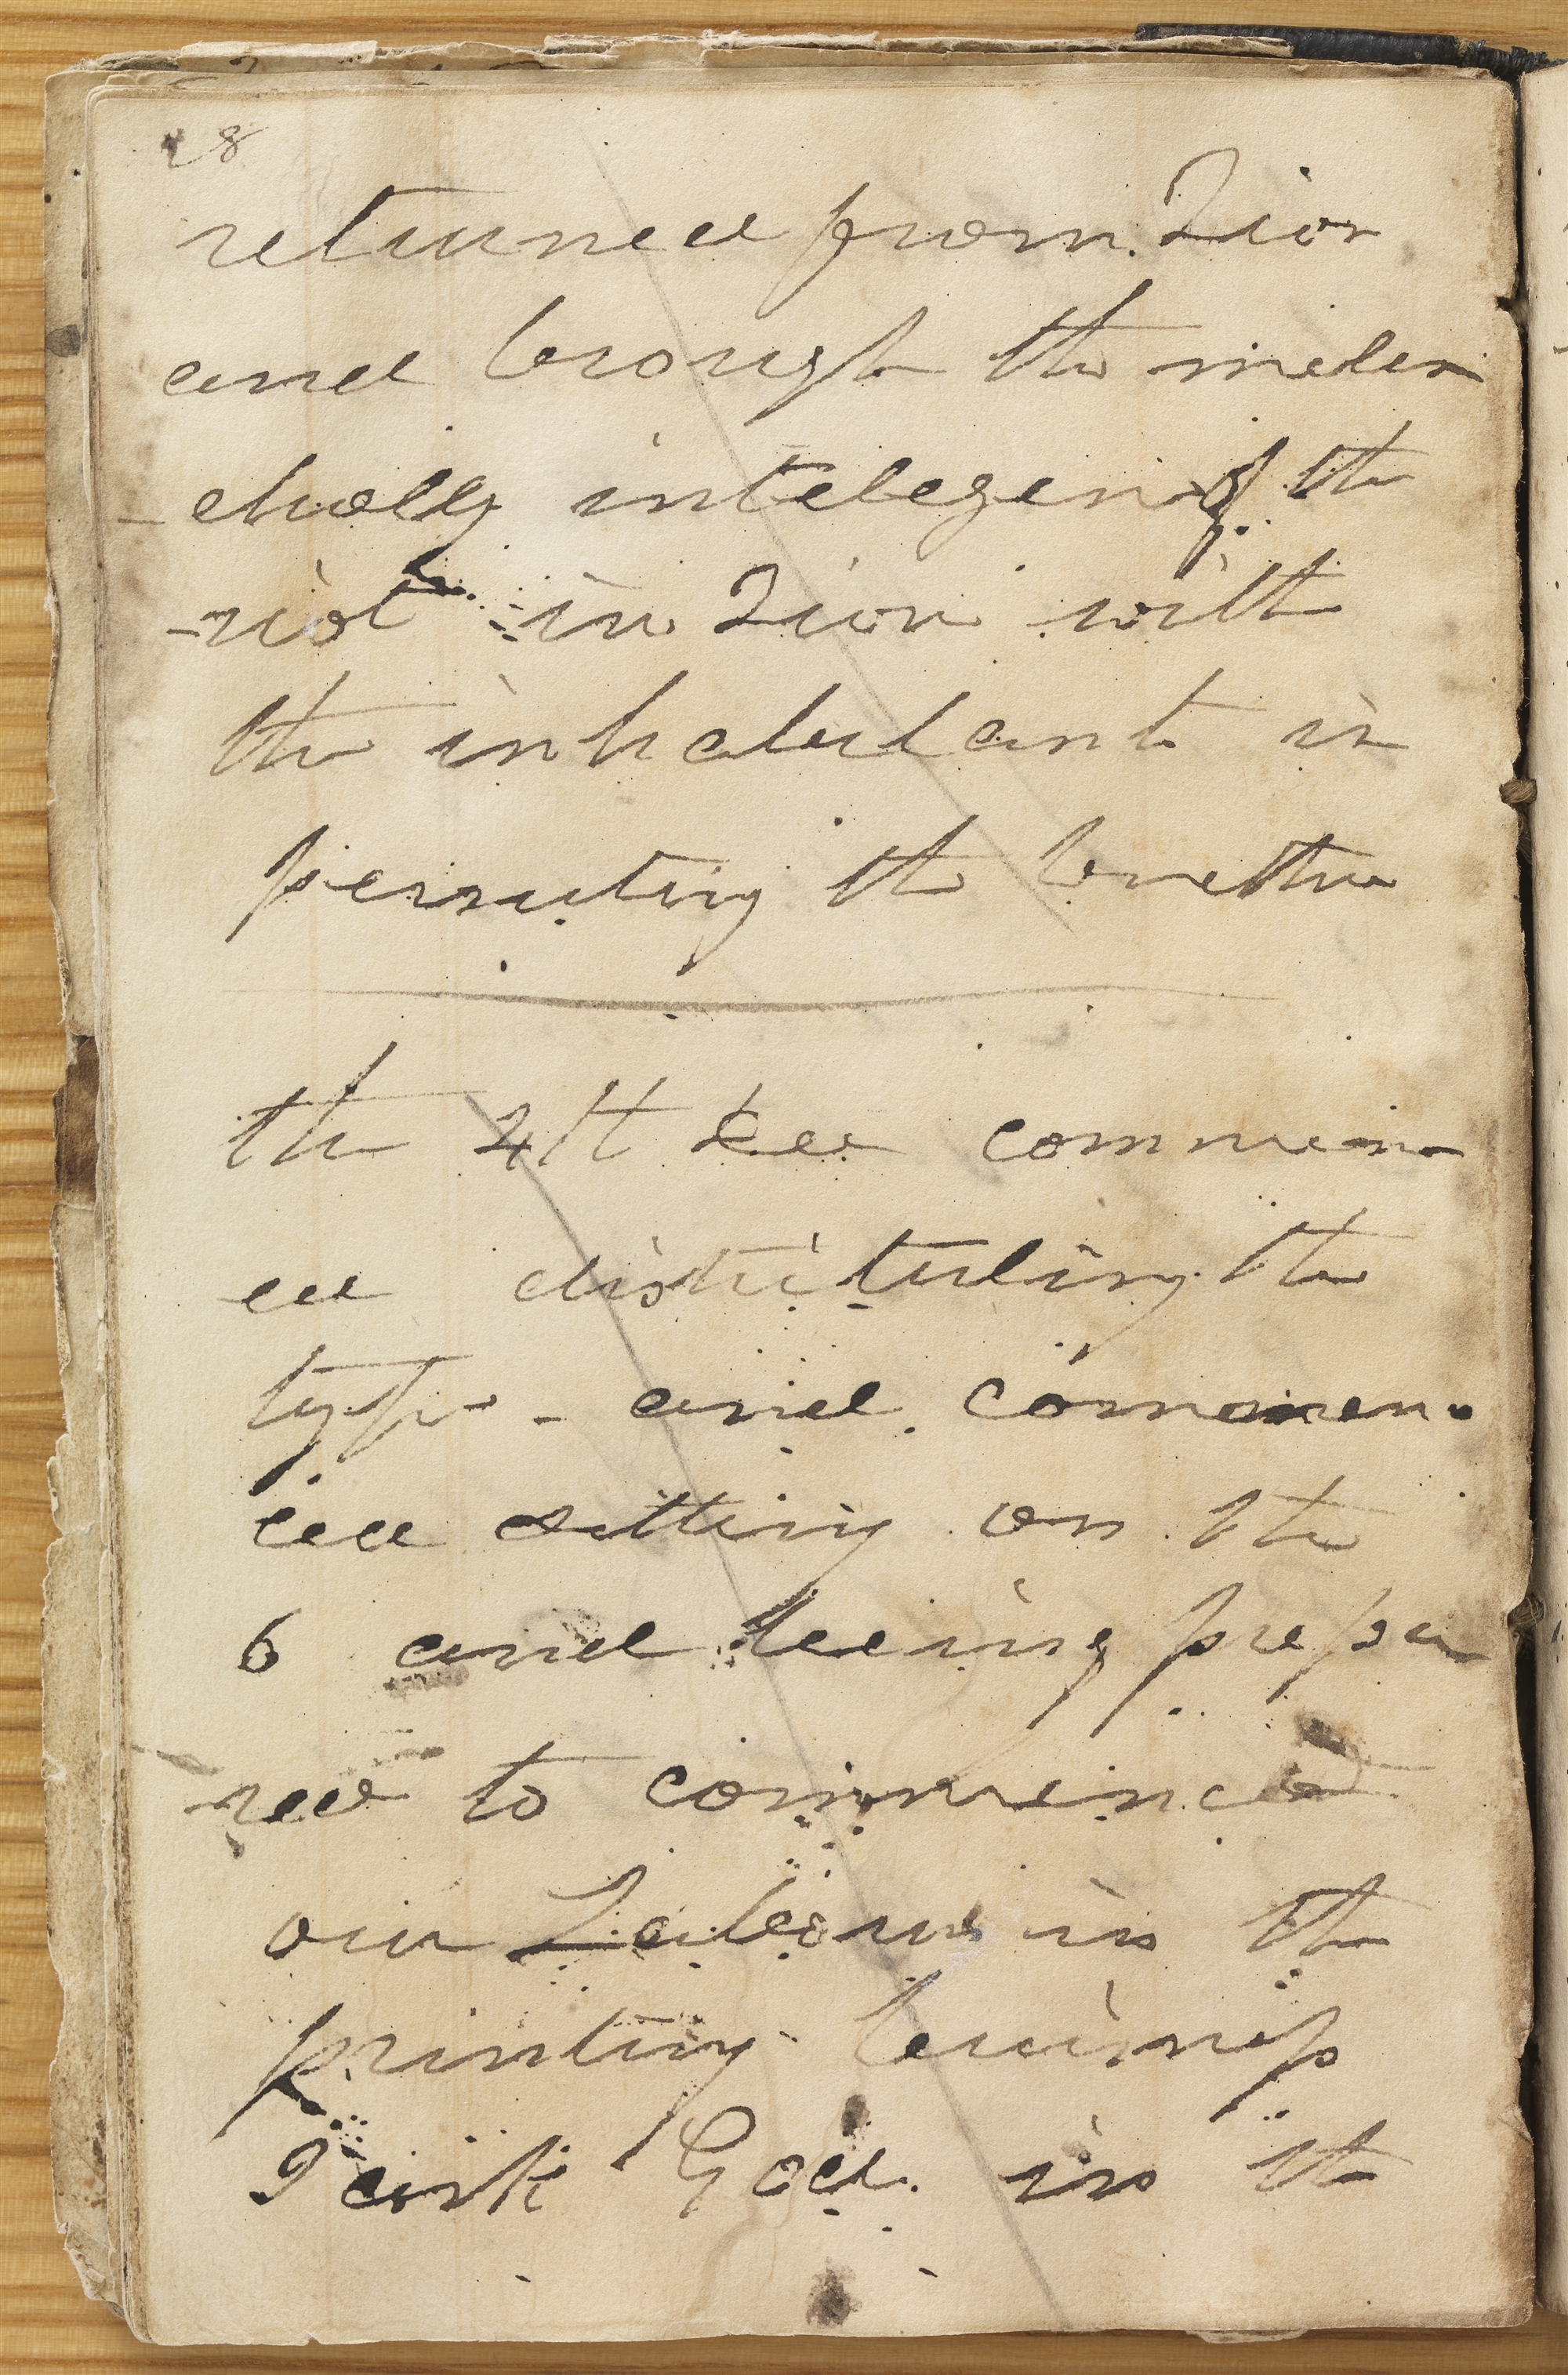 28
returned from Zion
and brough the melen
-cholly intelegen of the
riot in Zion with
the inhabitant in
persecuting the brethren
the 4th Dec commen
ced distributing the
type - and commen
ced setting on the
6 and being prepa
red to commence
our Labours in the
printing buisness
I ask God in the